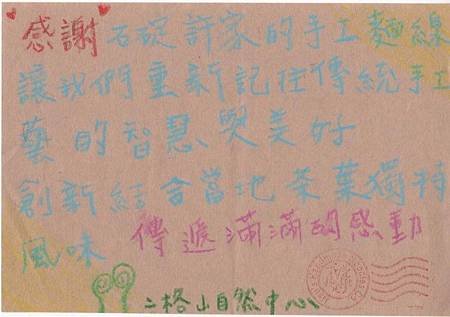 感謝 石碇許家的手工麵線
讓我們重新記住傳統手工
藝的智慧與美好
創新結合當地茶葉獨特
風味
傳遞滿滿的感動
二格山自然中心